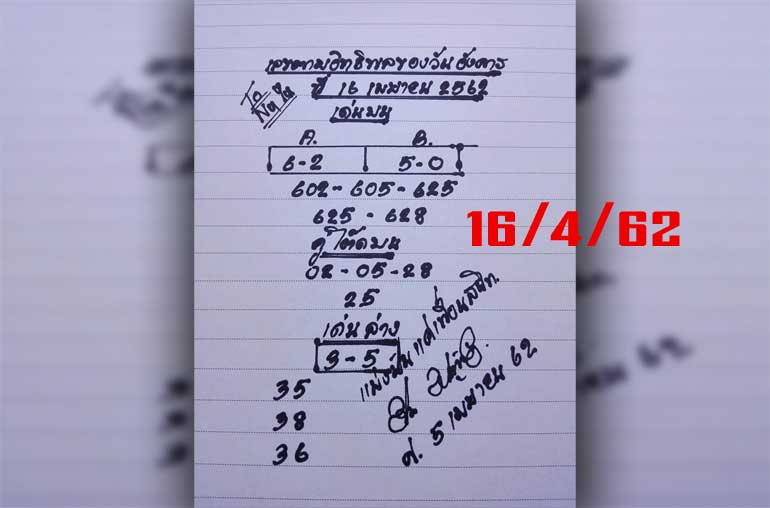 เลขตามอิทธิพลของวันอังคาร
ปี 16 เมษายน 2562
เด่นบน
A. B.
6-2 5-0
602-605-625
625-628
คู่โต๊ดบน
02-05-28
25
เด่นล่าง
3-5
35
38
36
แบ่งปันแด่เพื่อนสนิท
ศ. 5 เมษายน 62
16/4/62